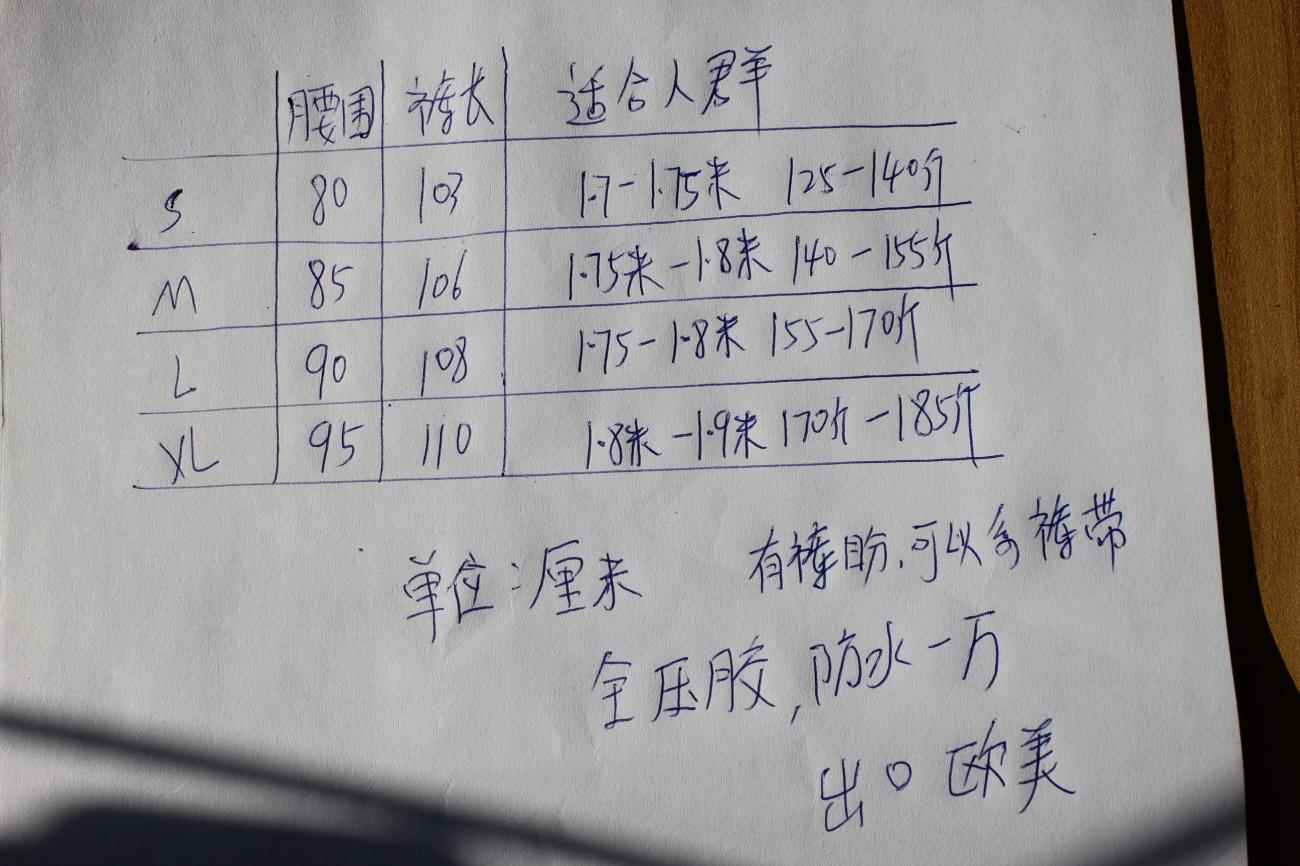 腰围 裤长 适合人群
S 80 103 1.7-1.75米 125-140斤
M 85 106 1.75米-1.8米 140-155斤
L 90 108 1.75-1.8米 155-170斤
XL 95 110 1.8米-1.9米 170斤-185斤
单位:厘米
有裤 ,可以 裤带
全压胶,防水一万
出口欧美